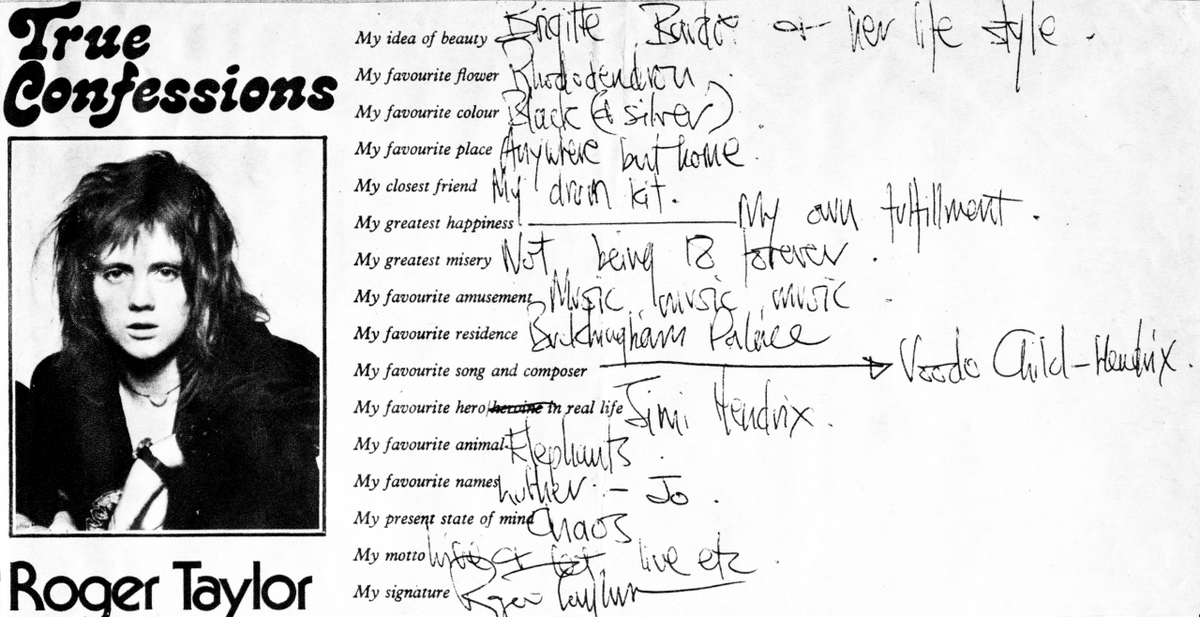 True
Confessions
Roger Taylor
My idea of beauty Brigitte Bardo or her life style .
My favourite flower Rhododendron .
My favourite colour Black (& silver) .
My favourite place Anywhere but home .
My closest friend My drum kit .
My greatest happiness My own fulfillment .
My greatest misery Not being 18 forever .
My favourite amusement Music, music, music .
My favourite residence Buckhingham Palace
My favourite song and composer → Voodo Child - Hendrix .
My favourite hero/heroine in real life Jimi Hendrix .
My favourite animal Elephants .
My favourite names Luther - Jo .
My present state of mind Chaos
My motto live etc .
My signature Roger Taylor